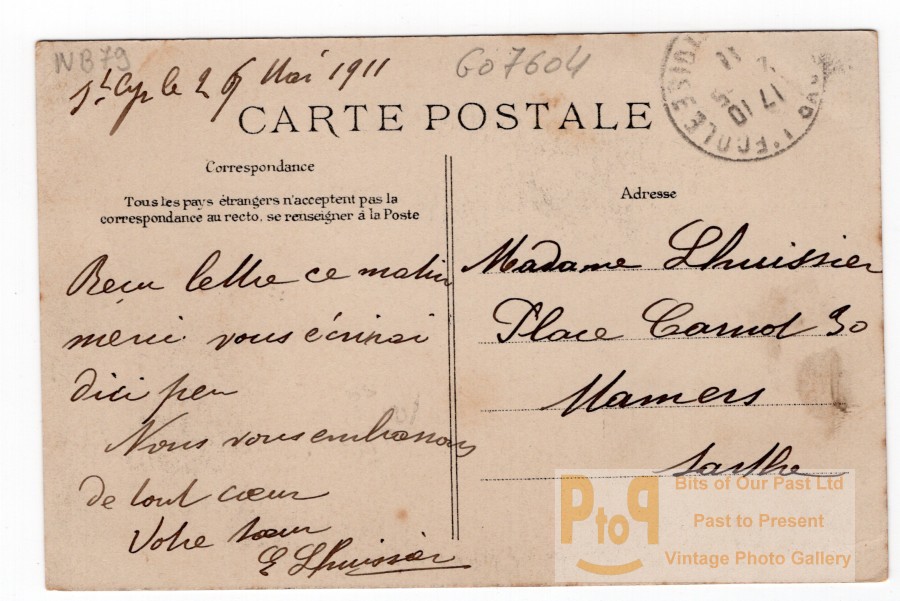 NB79
GO7604
St Cyr le 26 Mai 1911
CARTE POSTALE
Correspondance
Tous les pays étrangers n'acceptent pas la
correspondance au recto, se renseigner à la Poste
Reçu lettre ce matin
merci vous écrirai
dici peu
Nous vous embrassons
de tout cœur
Votre sœur
E Lhuissier
Adresse
Madame Lhuissier
Place Carnot 30
Mamers
Sarthe
L'ECOLE
17 10
PtoP
Bits of Our Past Ltd
Past to Present
Vintage Photo Gallery